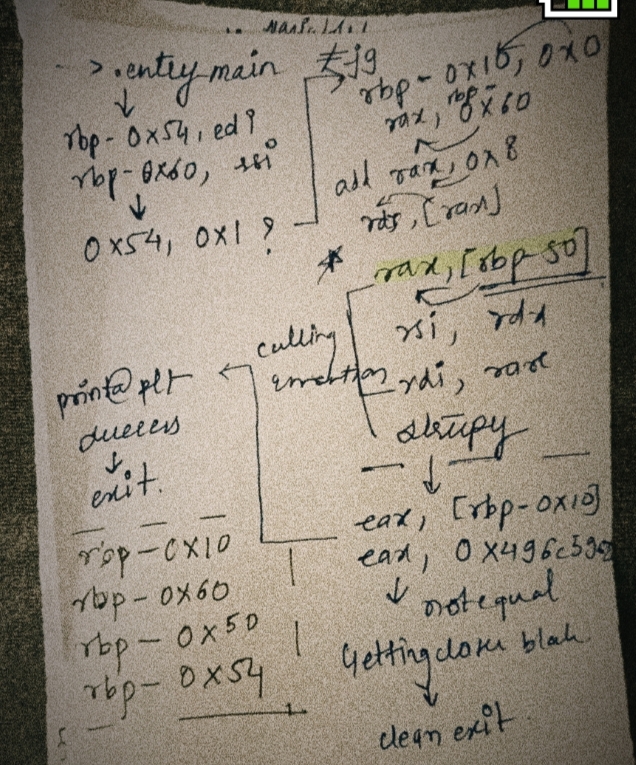 -> . entry main
rbp - 0x54, edi
rbp - 0x60, rsi
0x54, 0x1 ?
rbp - 0x10, 0x0
rax, rbp - 0x60
add rax, 0x8
[rax]
* rax, [rbp-50]
rsi, rdx
rdi, rax
strcpy
calling
eax, [rbp-0x10]
eax,
not equal
Getting closer blah.
clean exit.
print@plt
success
exit.
rbp - 0x10
rbp - 0x60
rbp - 0x50
rbp - 0x54